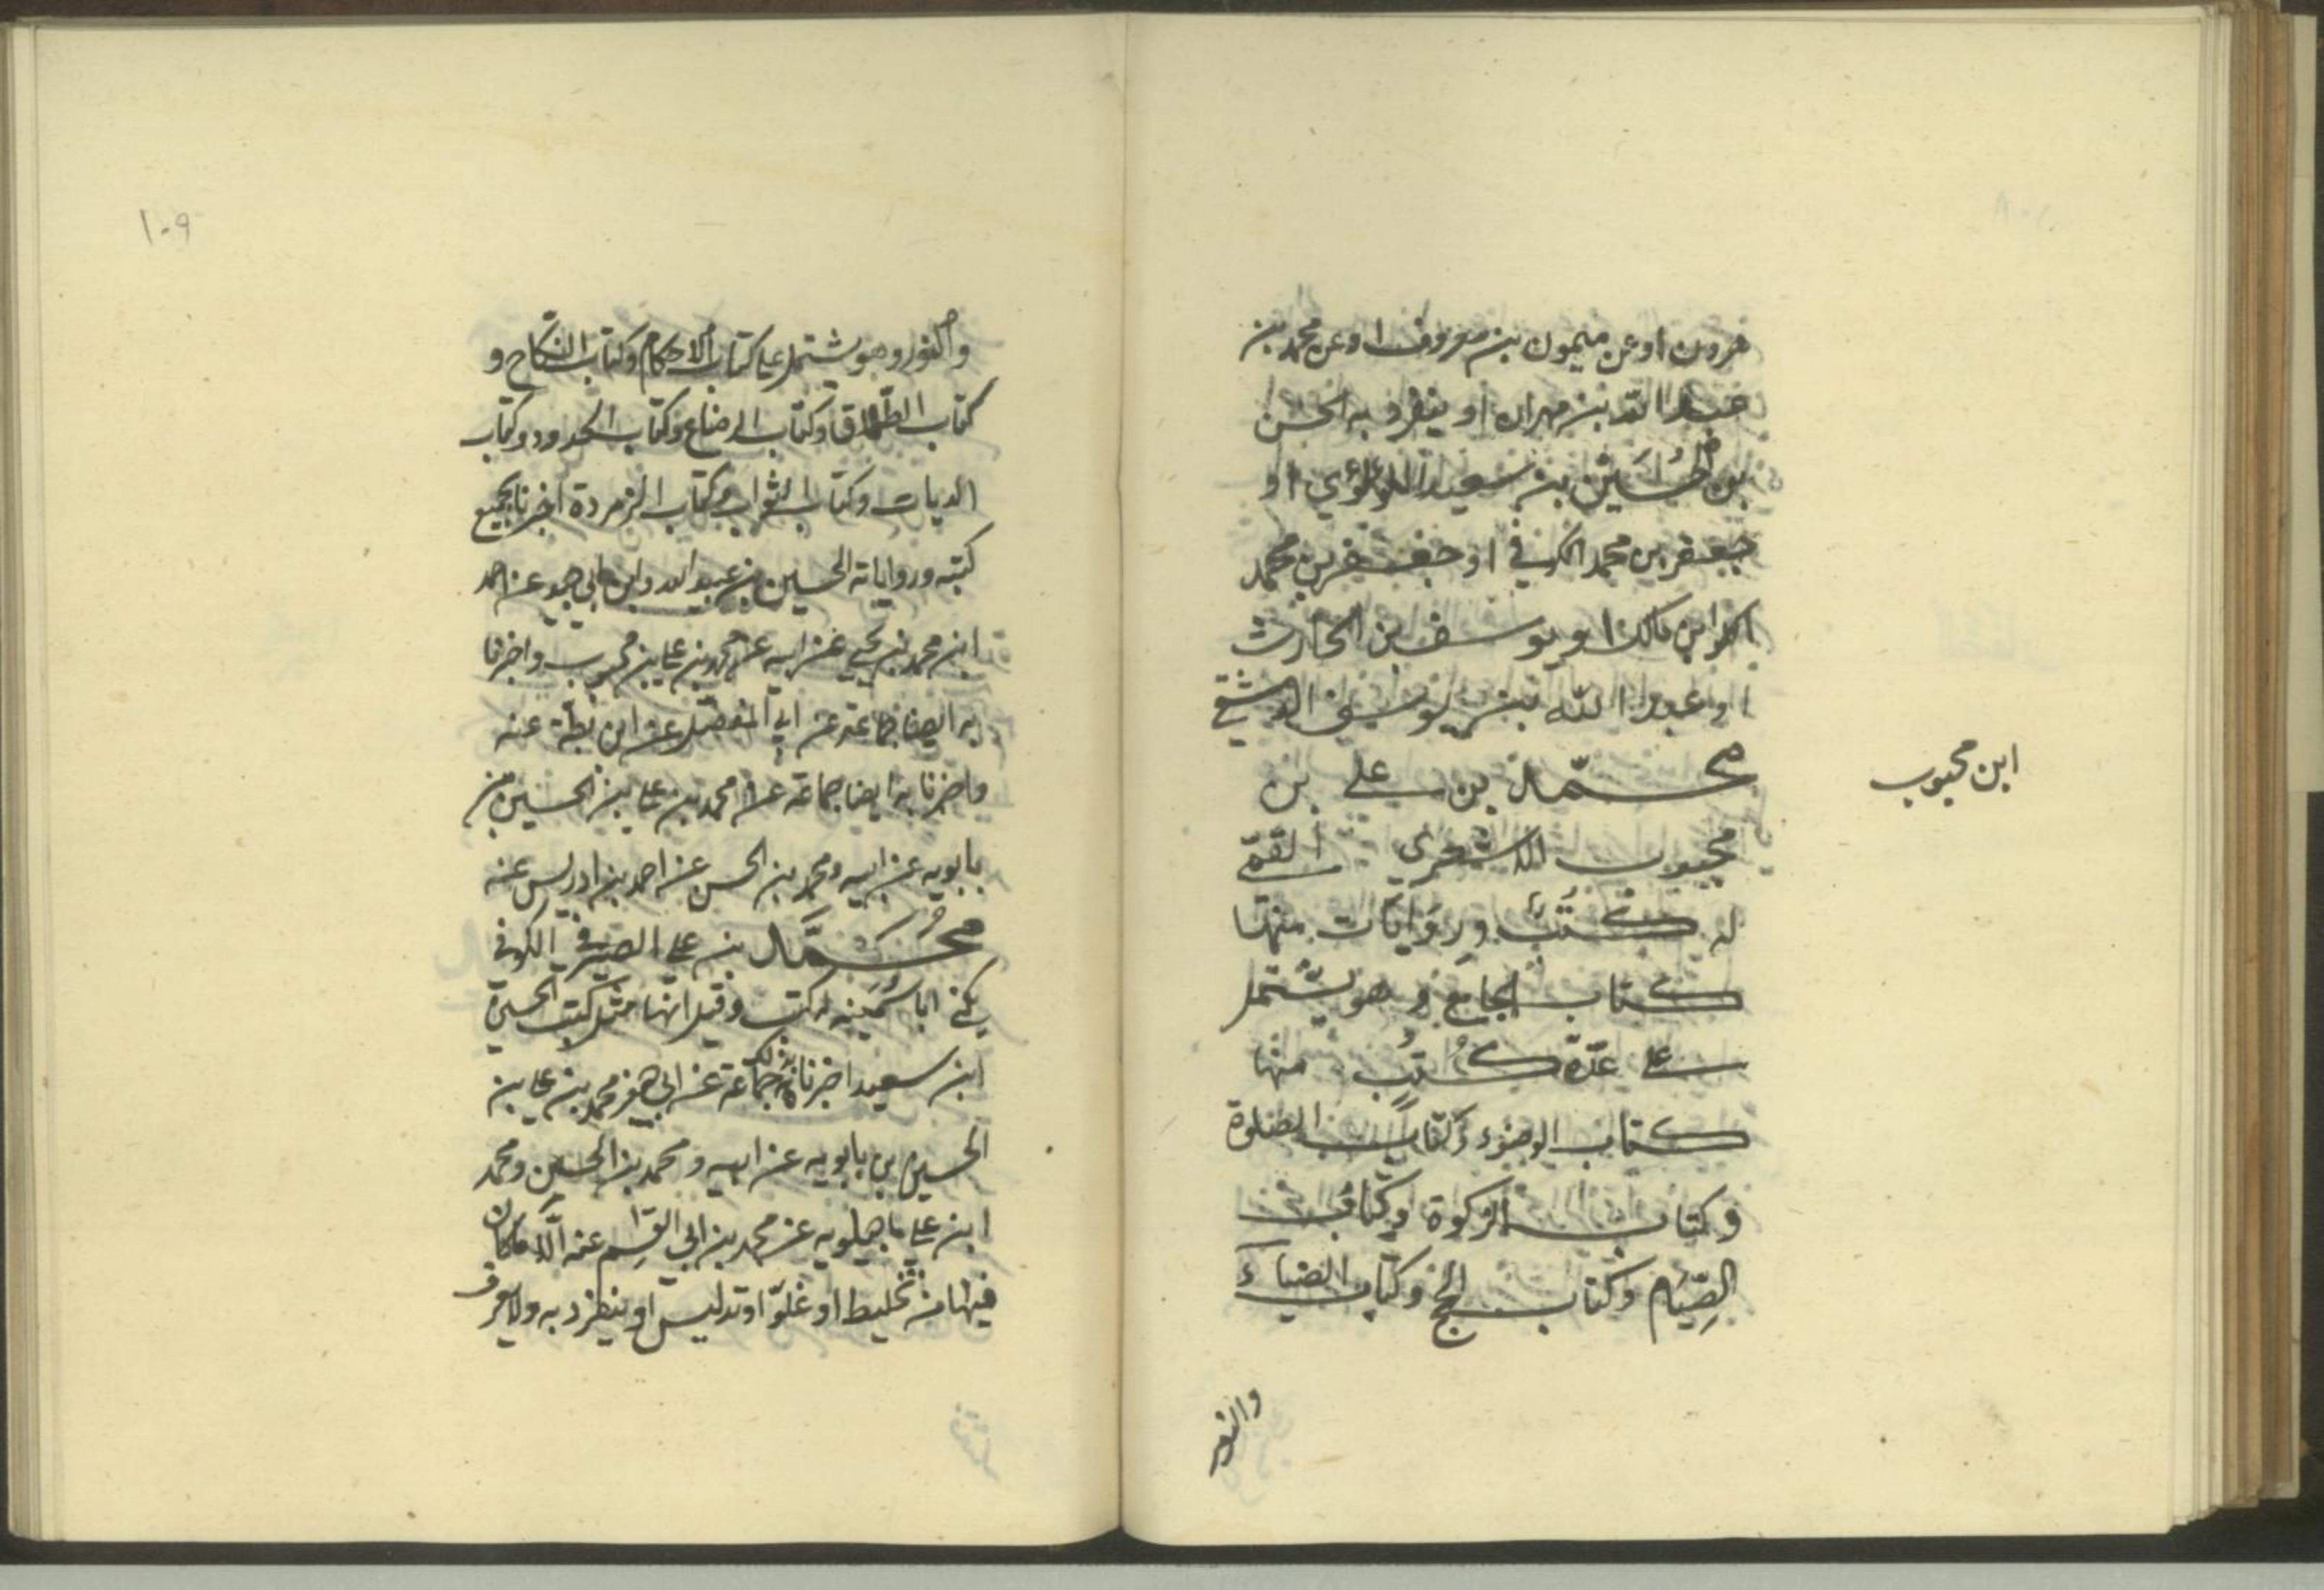 هرون او عن ميمون بن معروف او عن محمد بن
عبد الله بن مهران او ينفرد به الحسن
بن الحُسَين بن سعيد اللؤلؤي او
جعفر بن محمد الكوفي او جعفر بن محمد
ابن مالك او يوسف بن الحارث
او عبد الله بن الدمشقي
محمّد بن علي بن
ابن محبوب
محبوب الاشعري القمّي
له كتب وروَايَات منها
كتاب الجامع و هو يشتمل
على عدّة كُتُب منها
كتاب الوضوء وكتاب الصلوة
وكتاب الزكوة وكتاب
الصِّيَام وكتاب الحج وكتاب الضياء
والنور
١٠٩
والنور وهو يشتمل على كتاب الاحكام وكتاب النكاح و
كتاب الطلاق وكتاب الرضاع وكتاب الحدود وكتاب
الديات وكتاب الثواب وكتاب الزمردة اخبرنا بجميع
كتبه ورواياته الحسين بن عبيد الله وابن ابي جيد عن احمد
ابن محمد بن يحيى عن ابيه عن محمد بن علي بن محبوب واخبرنا
به ايضا جماعة عن ابي المفضّل عن ابن بطّة عنه
واخبرنا به ايضا جماعة عن محمد بن علي بن الحسين بن
بابويه عن ابيه ومحمد بن الحسن عن احمد بن ادريس عنه
محُمَّد بن علي الصيرفي الكوفي
يكنى ابا سُمَينه له كتب وقيل انها مثل كتب الحسين
ابن سعيد اخبرنا بذلك جماعة عن ابي جعفر محمد بن علي بن
الحسين بن بابويه عن ابيه ومحمد بن الحسن ومحمد
ابن علي ماجيلويه عن محمد بن ابي القاسم عنه الّا ما كان
فيها من تخليط او غلوّ او تدليس او ينفرد به ولا يعرف